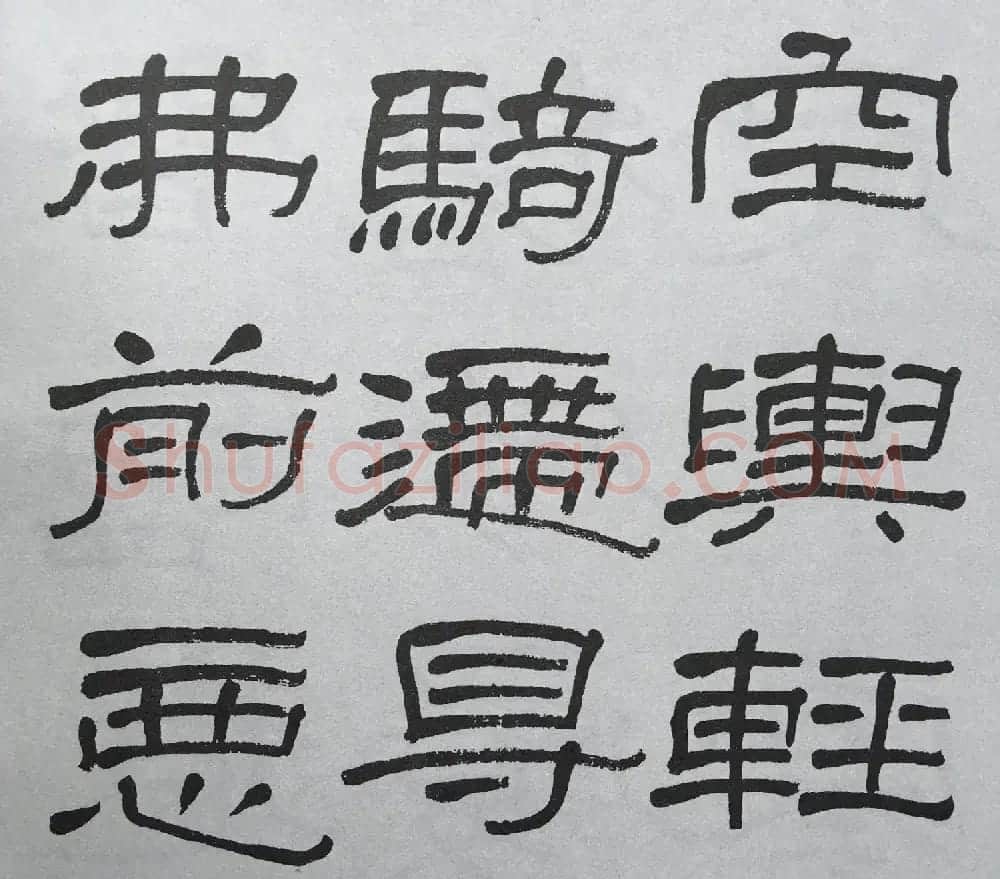 空輿輕
騎遰㝵
弗前惡
Shufaziliao.COM